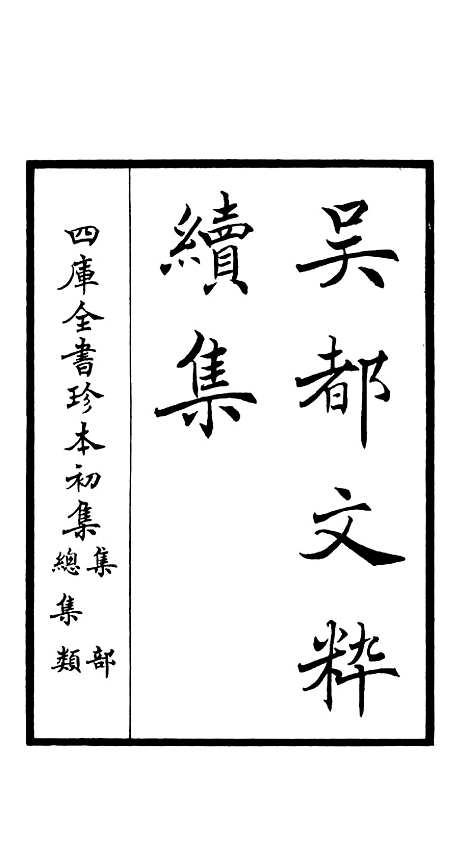 吳都文粹
續集
四庫全書珍本初集
集部
總集類